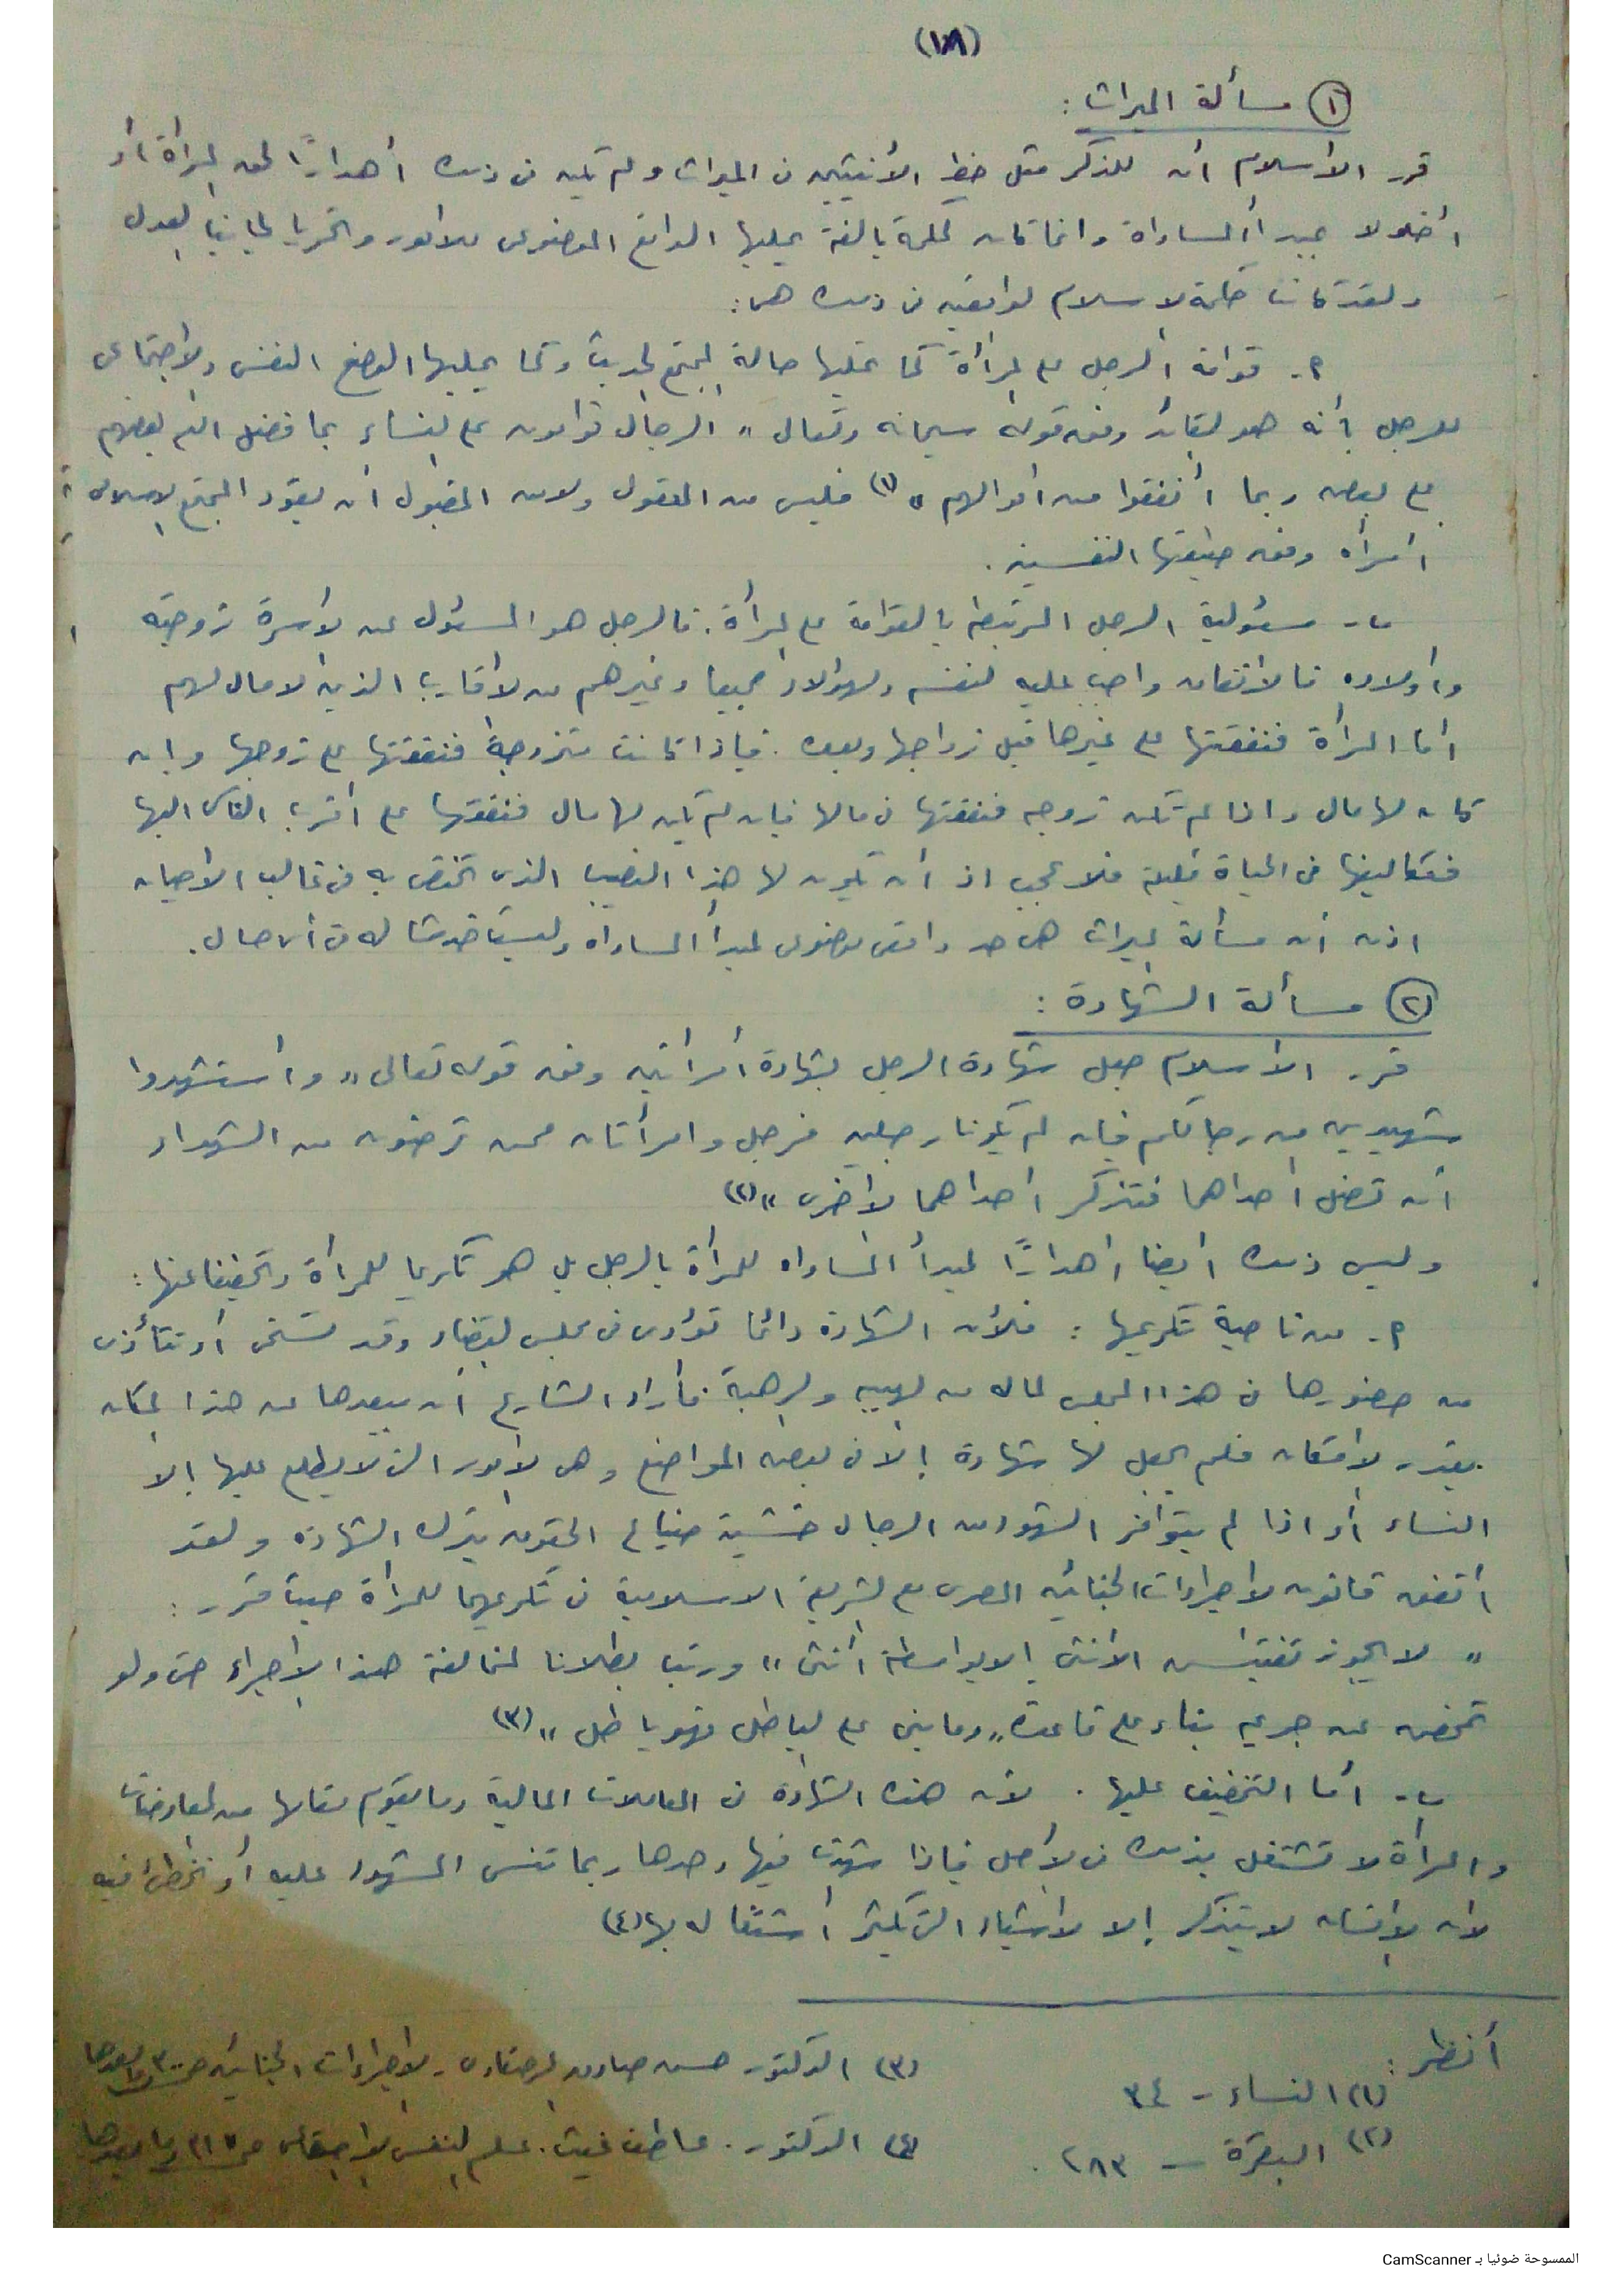 (١٨)
١ مسألة الميراث :
قرر الأسلام أن للذكر مثل حظ الأنثيين فى الميراث ولم يكن فى ذلك أهدارًا لحق المرأة أو
أخلالا بمبدأ المساواة وانما كان لحكمة بالغة يمليها الواقع الموضوعى للامور وتحريا لجانب العدل
ولقد كانت حكمة الاسلام لواقعيه فى ذلك هى :
٢ـ قوامة الرجل على المرأة كما تمليها حالة المجتمع الحديث وكما يمليها الوضع النفسى والاجتماعى
للرجل بأنه هو القائد وفق قوله سبحانه وتعالى " الرجال قوامون على النساء بما فضل الله بعضهم
على بعض وبما أنفقوا من اموالهم " (١) فليس من المعقول ولا من المقبول أن يقود المجتمع الاسلامى
أمرأه وفق طبيعتها النفسيه .
ب ـ مسئولية الرجل المرتبطه بالقوامة على المرأة . فالرجل هو المسئول عن الأسرة زوجته
وأولاده فالأنفاق واجب عليه لنفسه ولهؤلاء جميعا وغيرهم من الأقارب الذين لا مال لهم
أما المرأة فنفقتها على غيرها قبل زواجها وبعده . فإذا كانت متزوجة فنفقتها على زوجها وإن
كان لها مال واذا لم تكن زوجه فنفقتها فى مالها فإن لم يكن لها مال فنفقتها على أقرب الناس اليها
فتكاليفها فى الحياة قليلة فلا عجب اذ أن يكون لها هذا النصيب الذى تختص به فى غالب الأحيان
اذن أن مسألة الميراث هى حد واقعى موضوعى لمبدأ المساواه وليست خدشا له فى أى حال .
٢ مسألة الشهادة :
قرر الأسلام جعل شهادة الرجل بشهادة أمرأتين وفق قوله تعالى " وأستشهدوا
شهيدين من رجالكم فإن لم يكونا رجلين فرجل وامرأتان ممن ترضون من الشهداء
أن تضل أحداهما فتذكر أحداهما الأخرى " (٢)
وليس ذلك أيضا أهدارًا لمبدأ المساواه للمرأة بالرجل بل هو تكريما للمرأة وتخفيفا عنها :
٢ـ من ناحية تكريمها : فلأن الشهادة دائما تؤدى فى مجلس القضاء وقد تستحى أو تتأذى
من حضورها فى هذا المجلس لما له من الهيبه والرهبة . فأراد الشارع أن يبعدها عن هذا المكان
بقدر الأمكان فلم يجعل لها شهادة إلا فى بعض المواضع وهى الأمور التى لا يطلع عليها إلا
النساء أو اذا لم يتوافر الشهود من الرجال خشية ضياع الحقوق بترك الشهاده ولقد
أتفق قانون الأجراءات الجنائيه المصرى مع الشريعة الاسلامية فى تكريمها للمرأة حيث قرر :
" لا يجوز تفتيش الأنثى إلا بواسطة أنثى " ورتب بطلانا لمخالفة هذا الأجراء حتى ولو
تمخض عن جريمه بناء على قاعدة " وما بنى على الباطل فهو باطل " (٣)
ب ـ أما التخفيف عليها . لأن هذه الشهادة فى المعاملات المالية وما يقوم مقامها من المعاوضات
والمرأة لا تشتغل بذلك فى الأصل فإذا شهدت فيها وحدها ربما تنسى المشهود عليه أو تخطئ فيه
لأن الأنسان لا يتذكر إلا الأشياء التى يكثر أشتغاله بها (٤)
أنظر :
(١) النساء - ٣٤
(٢) البقرة - ٢٨٣ .
(٣) الدكتور حسن صادق المرصفاوى - الأجراءات الجنائيه ص وما بعدها
(٤) الدكتور . عاطف غيث . علم النفس الاجتماعى ص ٢١٥ وما بعدها
الممسوحة ضوئيا بـ CamScanner